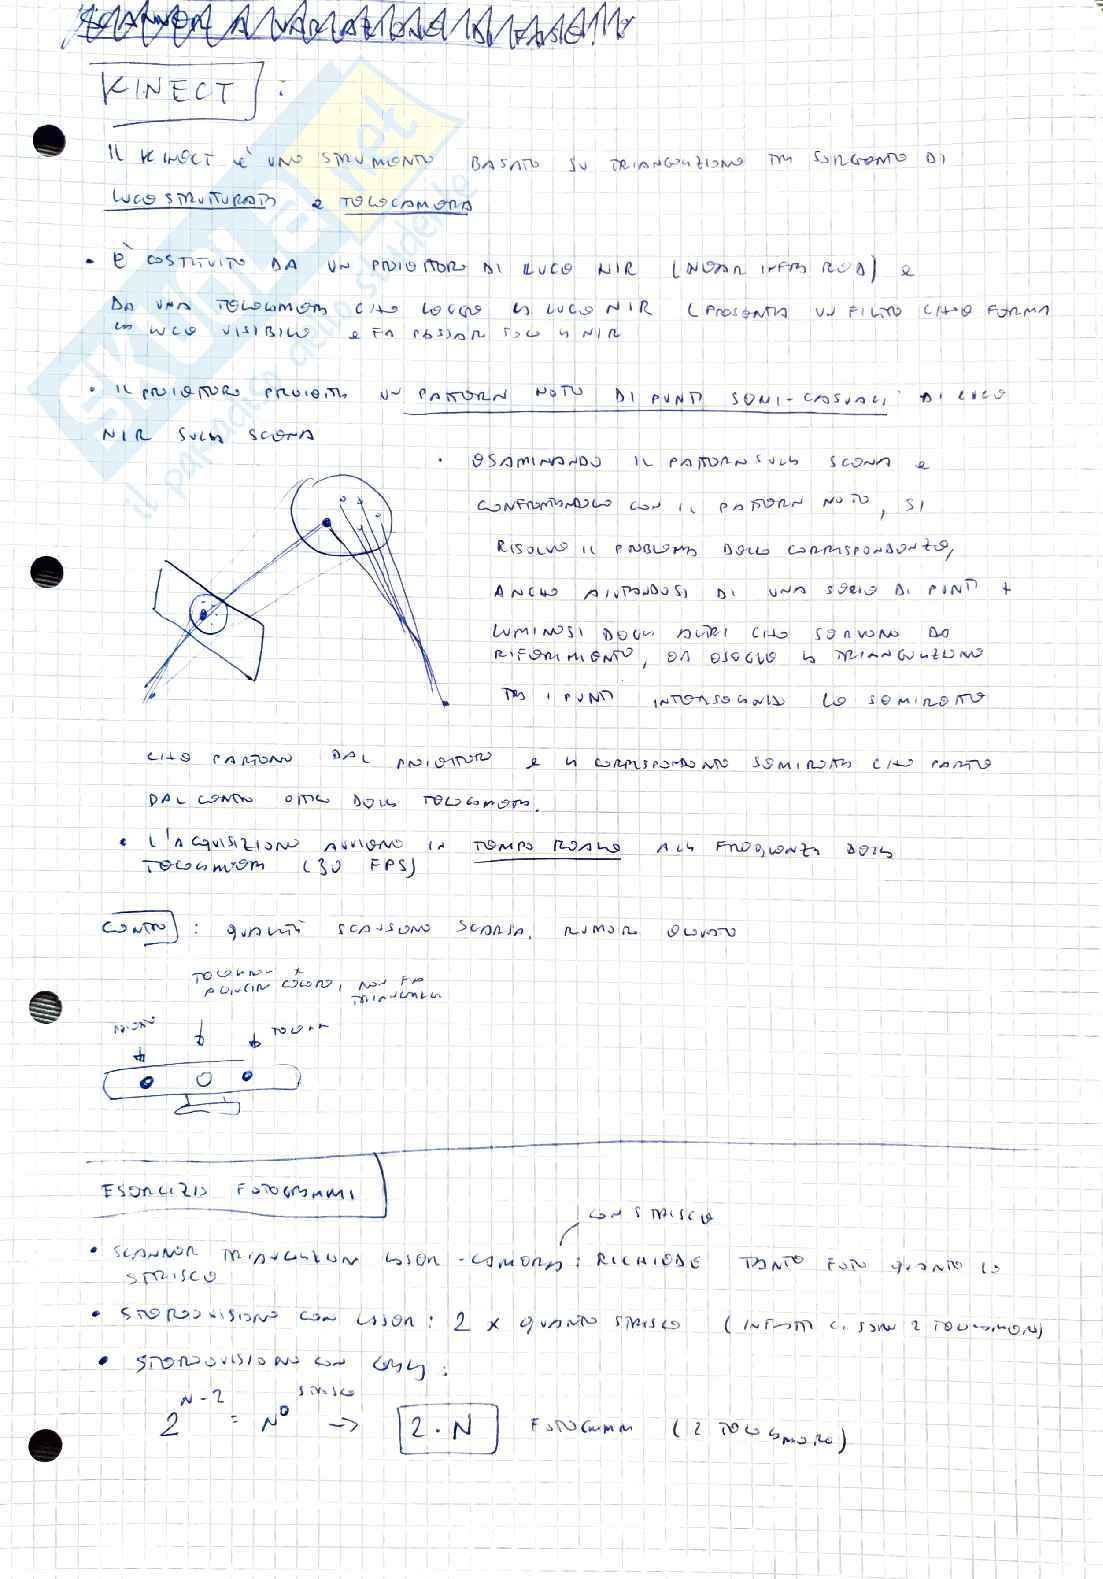 SCANNER A VARIAZIONE DI FASE
KINECT :
IL KINECT È UNO STRUMENTO BASATO SU TRIANGOLAZIONE TRA SORGENTE DI
LUCE STRUTTURATA e TELECAMERA
• È COSTITUITO DA UN PROIETTORE DI LUCE NIR (NEAR INFRA RED) e
DA UNA TELECAMERA CHE LEGGE LA LUCE NIR (PRESENTA UN FILTRO CHE FERMA
LA LUCE VISIBILE e FA PASSAR SOLO LA NIR
• IL PROIETTORE PROIETTA UN PATTERN NOTO DI PUNTI SEMI-CASUALI DI LUCE
NIR SULLA SCENA
• ESAMINANDO IL PATTERN SULLA SCENA e
CONFRONTANDOLO CON IL PATTERN NOTO, SI
RISOLVE IL PROBLEMA DELLE CORRISPONDENZE,
ANCHE AIUTANDOSI DI UNA SERIE DI PUNTI +
LUMINOSI DEGLI ALTRI CHE SERVONO DA
RIFERIMENTO, ED ESEGUE LA TRIANGOLAZIONE
TRA I PUNTI INTERSECANDO LE SEMIRETTE
CHE PARTONO DAL PROIETTORE e LA CORRISPONDENTE SEMIRETTA CHE PARTE
DAL CENTRO OTTICO DELLA TELECAMERA.
• L'ACQUISIZIONE AVVIENE IN TEMPO REALE ALLA FREQUENZA DELLA
TELECAMERA (30 FPS)
CONTRO : QUALITÀ SCANSIONE SCARSA, RUMORE ELEVATO
COLORE, NON FA
ESERCIZIO FOTOGRAMMI
CON STRISCE
• SCANNER TRIANGOLAZION LASER-CAMERA : RICHIEDE TANTE FOTO QUANTE LE
STRISCE
• STEREOVISIONE CON LASER : 2 x QUANTE STRISCE (INFATTI CI SONO 2 TELECAMERE)
• STEREOVISIONE CON GRAY :
2^N-2 = N° STRISCE → 2 · N FOTOGRAMMI (2 TELECAMERE)
SKUOLA.net
il paradiso dello studente